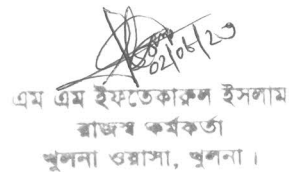 ০২/০৮/২৩
এম এম ইফতেকারুল ইসলাম
রাজস্ব কর্মকর্তা
খুলনা ওয়াসা, খুলনা।